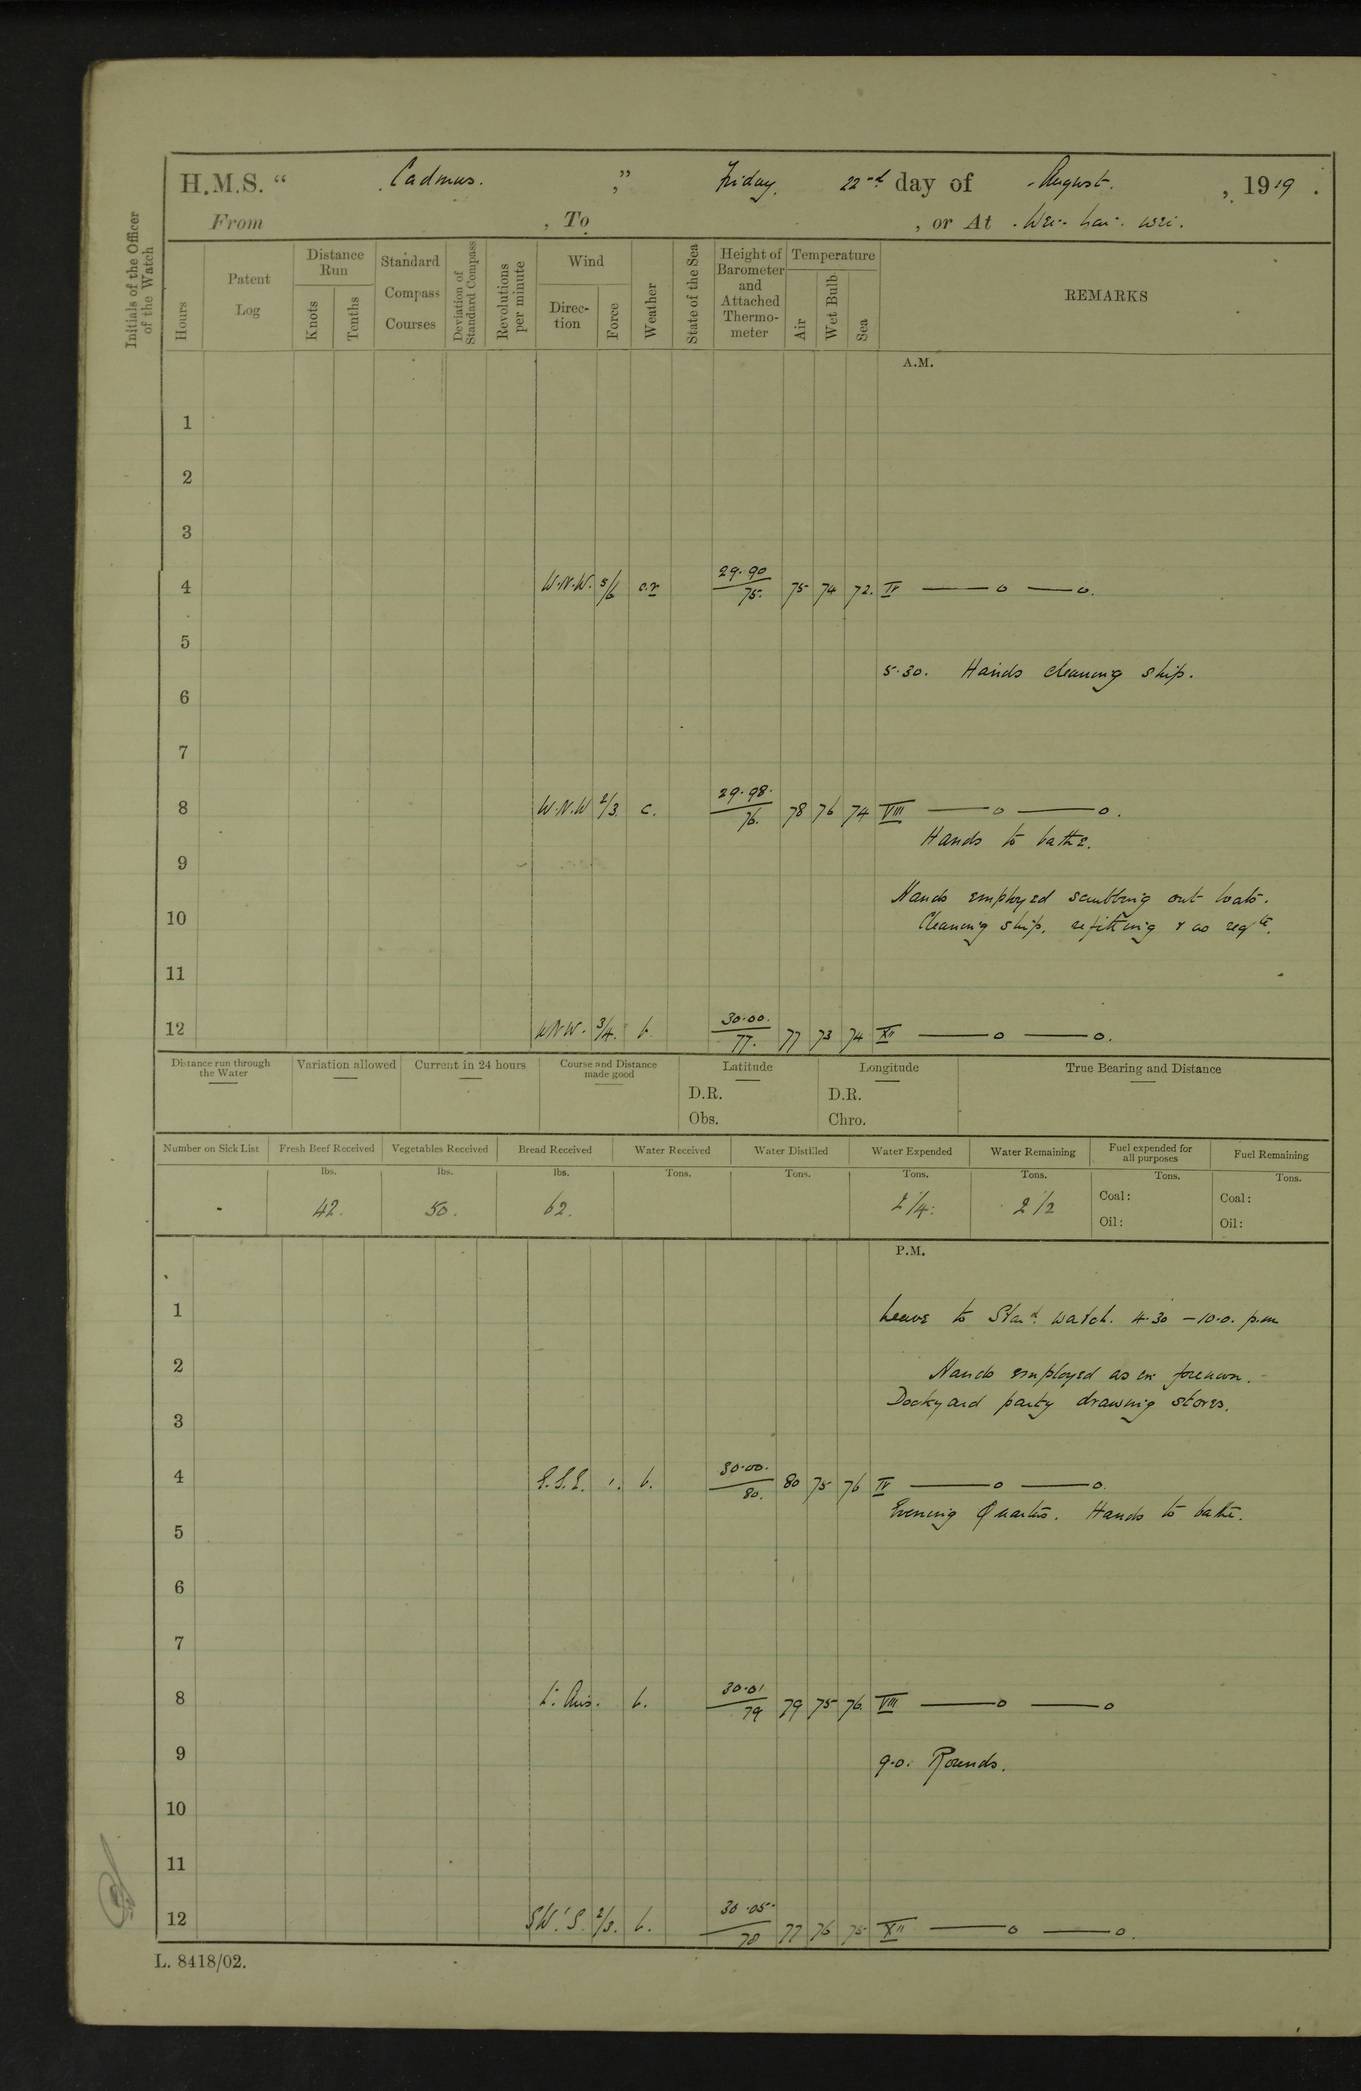 H.M.S. “ Cadmus. ,” Friday, 22nd day of August. , 1919 .
From , To , or At Wei-hai-wei.
Initials of the Officer of the Watch
Hours
Patent Log
Distance Run
Knots
Tenths
Standard Compass Courses
Deviation of Standard Compass
Revolutions per minute
Wind
Direction
Force
Weather
State of the Sea
Height of Barometer and Attached Thermometer
Temperature
Air
Wet Bulb
Sea
REMARKS
A.M.
1
2
3
4 W.N.W. 5/6 c.r 29.90/75. 75 74 72. IV ——o ——o.
5
5.30. Hands cleaning ship.
6
7
8 W.N.W 2/3. c. 29.98./76. 78 76 74 VIII ——o ——o.
Hands to bathe.
9
Hands employed scrubbing out boats.
10 Cleaning ship, refitting & as reqte.
11
12 WNW. 3/4. b. 30.00./77. 77 73 74 XII ——o ——o.
Distance run through the Water
Variation allowed
Current in 24 hours
Course and Distance made good
Latitude
D.R.
Obs.
Longitude
D.R.
Chro.
True Bearing and Distance
Number on Sick List
Fresh Beef Received
Vegetables Received
Bread Received
Water Received
Water Distilled
Water Expended
Water Remaining
Fuel expended for all purposes
Fuel Remaining
lbs. lbs. lbs. Tons. Tons. Tons. Tons. Tons. Tons.
42. 50. 62. 2 1/4. 2 1/2
Coal: Coal:
Oil: Oil:
P.M.
1 Leave to Stard. watch. 4.30 – 10.0. p.m
2 Hands employed as in forenoon.
Dockyard party drawing stores.
3
4 E.S.E. 1. b. 30.00./80. 80 75 76 IV ——o ——o.
Evening Quarters. Hands to bathe.
5
6
7
8 Lt. Airs. b. 30.01/79 79 75 76. VIII ——o ——o
9 9.0. Rounds.
10
11
12 SW'S. 2/3. b. 30.05./78 77 76 75 XII ——o ——o.
L. 8418/02.